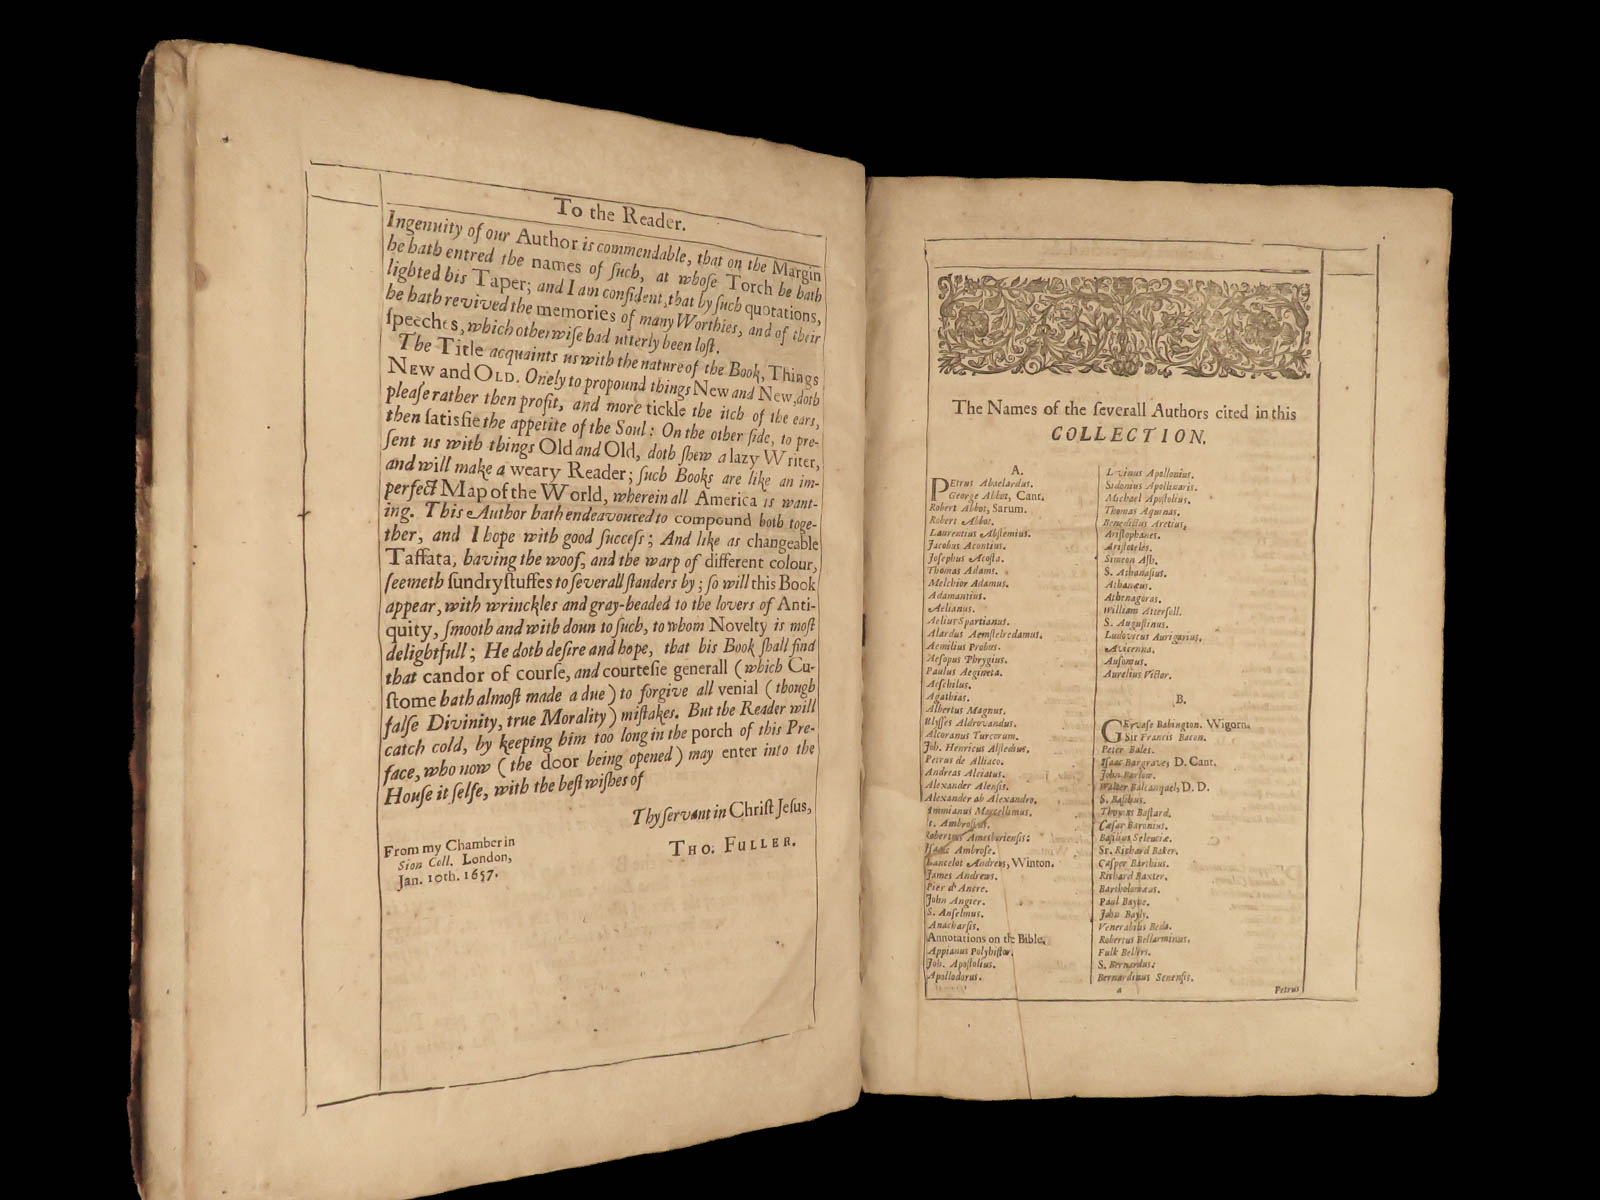 To the Reader.
Ingenuity of our Author is commendable, that on the Margin
he hath entred the names of ſuch, at whoſe Torch he hath
lighted his Taper; and I am confident, that by ſuch quotations,
he hath revived the memories of many Worthies, and of their
ſpeeches, which otherwiſe had utterly been loſt.
The Title acquaints us with the nature of the Book, Things
NEW and OLD. Onely to propound things New and New, doth
pleaſe rather then profit, and more tickle the itch of the ears,
then ſatisfie the appetite of the Soul: On the other ſide, to pre-
ſent us with things Old and Old, doth ſhew a lazy Writer,
and will make a weary Reader; ſuch Books are like an im-
perfect Map of the World, wherein all America is want-
ing. This Author hath endeavoured to compound both toge-
ther, and I hope with good ſucceſs; And like as changeable
Taffata, having the woof, and the warp of different colour,
ſeemeth ſundry ſtuffes to ſeverall ſtanders by; ſo will this Book
appear, with wrinckles and gray-headed to the lovers of Anti-
quity, ſmooth and with doun to ſuch, to whom Novelty is moſt
delightfull; He doth deſire and hope, that his Book ſhall find
that candor of courſe, and courteſie generall (which Cu-
ſtome hath almoſt made a due) to forgive all venial (though
falſe Divinity, true Morality) miſtakes. But the Reader will
catch cold, by keeping him too long in the porch of this Pre-
face, who now (the door being opened) may enter into the
Houſe it ſelfe, with the beſt wiſhes of
Thy ſervant in Chriſt Jeſus,
THO. FULLER.
From my Chamber in
Sion Coll. London,
Jan. 10th. 1657.
The Names of the ſeverall Authors cited in this
COLLECTION.
A.
PEtrus Abaelardus.
George Abbot, Cant.
Robert Abbot, Sarum.
Robert Abbot.
Laurentius Abſtemius.
Jacobus Acontius.
Joſephus Acoſta.
Thomas Adams.
Melchior Adamus.
Adamantius.
Aelianus.
Aelius Spartianus.
Alardus Aemſtelredamus.
Aemilius Probus.
Aeſopus Phrygius.
Paulus Aegineta.
Aeſchilus.
Agathias.
Albertus Magnus.
Ulyſſes Aldrovandus.
Alcoranus Turcorum.
Joh. Henricus Alſtedius.
Petrus de Alliaco.
Andreas Alciatus.
Alexander Alenſis.
Alexander ab Alexandro.
Ammianus Marcellinus.
Ambroſius.
Robertus Amesburienſis:
Iſaac Ambroſe.
Lancelot Andrews, Winton.
James Andrews.
Pier d' Ancre.
John Angier.
S. Anſelmus.
Anacharſis.
Annotations on the Bible.
Appianus Polyhiſtor.
Joh. Apoſtolius.
Apollodorus.
Levinus Apollonius.
Sidonius Apollinaris.
Michael Apoſtolius.
Thomas Aquinas.
Benedictus Aretius,
Ariſtophanes.
Ariſtoteles.
Simeon Aſh.
S. Athanaſius.
Athenæus.
Athenagoras.
William Atterſoll.
S. Auguſtinus.
Ludovicus Aurigarius,
Avicenna.
Auſonius.
Aurelius Victor.
B.
GErvaſe Babington. Wigorn.
Sir Francis Bacon.
Peter Bales.
Iſaac Bargrave, D. Cant.
John Barlow.
Walter Balcanquel, D. D.
S. Baſilius.
Thomas Baſtard.
Cæſar Baronius.
Baſilius Seleuciæ.
Sr. Richard Baker.
Caſper Barthius.
Richard Baxter.
Bartholomæus.
Paul Bayne.
John Bayly.
Venerabilis Beda.
Robertus Bellarminus.
Fulk Bellers.
S. Bernardus.
Bernardinus Senenſis.
a
Petrus